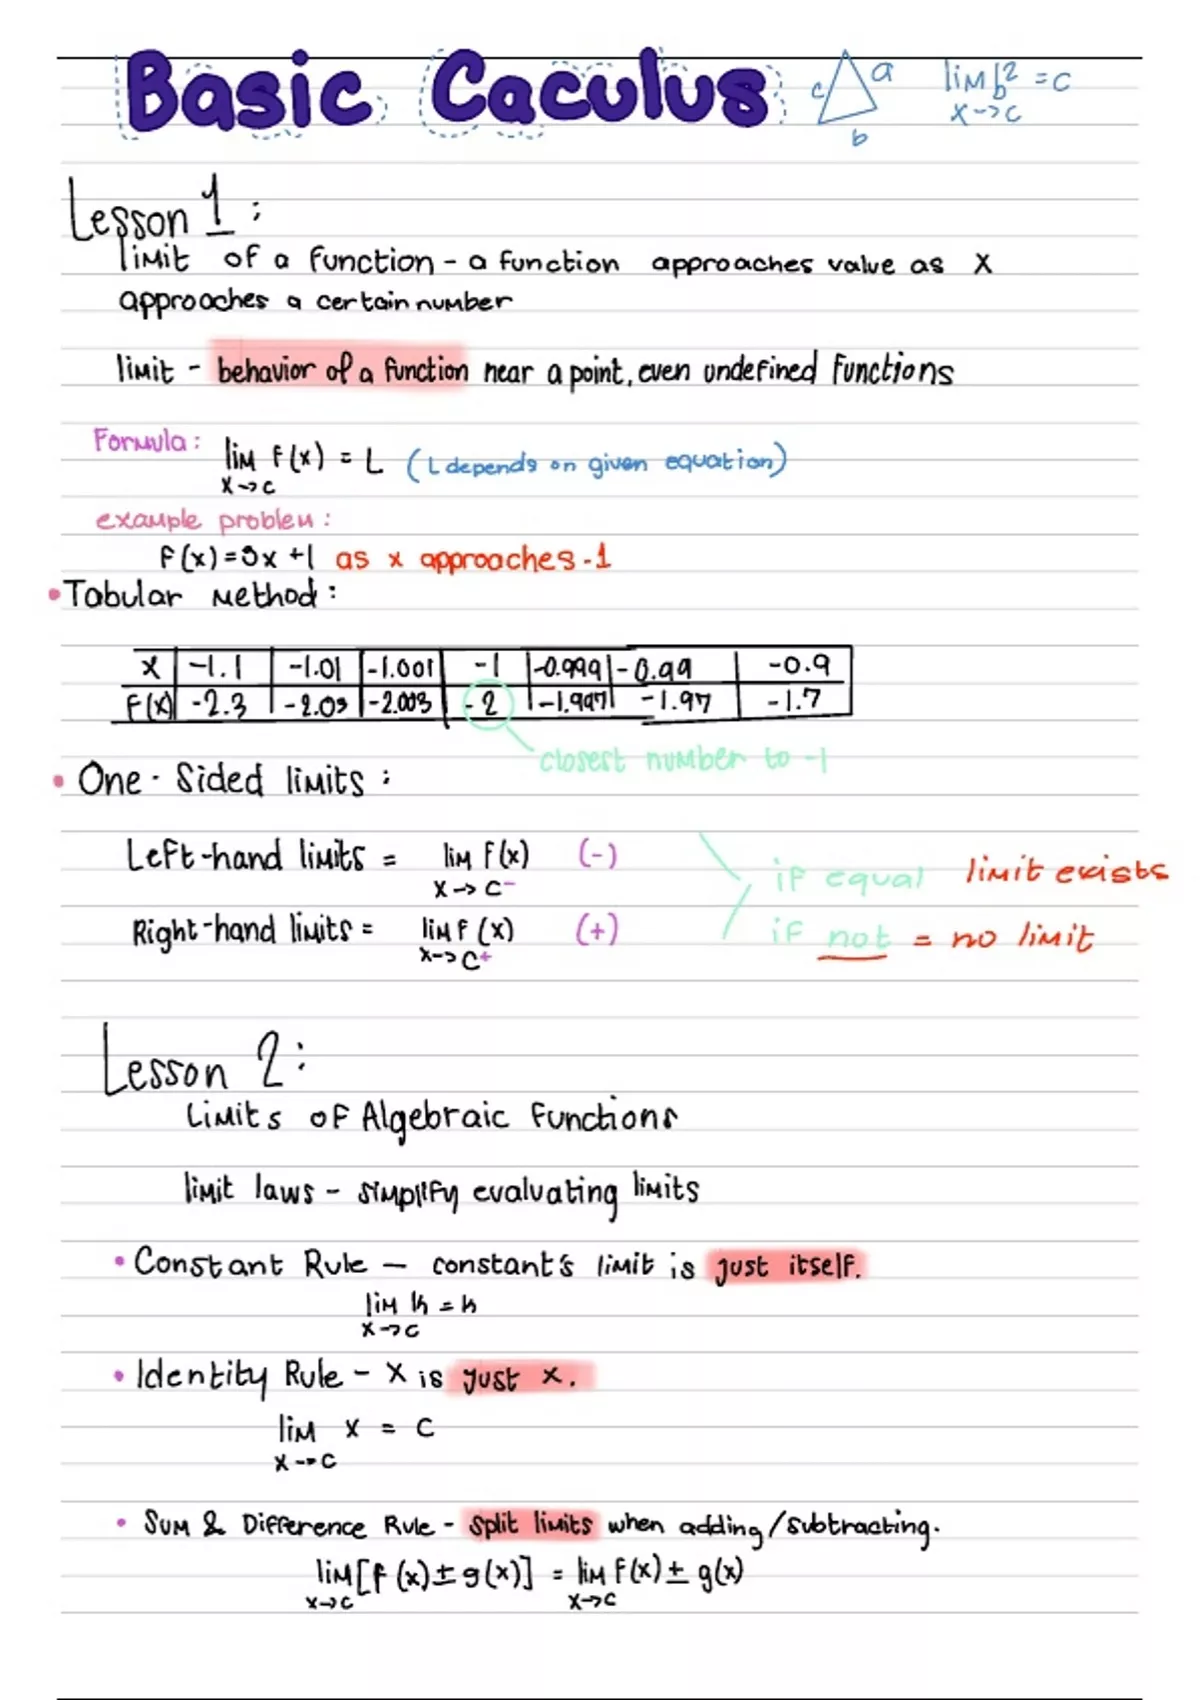 Basic Caculus
c a b
lim b² = c
x→c b
Lesson 1:
limit of a function - a function approaches value as x
approaches a certain number
limit - behavior of a function near a point, even undefined functions
Formula: lim f(x) = L (L depends on given equation)
x→c
example problem:
f(x)=3x+1 as x approaches -1
• Tabular Method:
x -1.1 -1.01 -1.001 -1 -0.999 -0.99 -0.9
f(x) -2.3 -2.03 -2.003 -2 -1.997 -1.97 -1.7
closest number to -1
• One-Sided limits:
Left-hand limits = lim f(x) (-)
x→c⁻
if equal limit exists
Right-hand limits = lim f(x) (+)
x→c⁺
if not = no limit
Lesson 2:
Limits of Algebraic Functions
limit laws - simplify evaluating limits
• Constant Rule — constant's limit is just itself.
lim k = k
x→c
• Identity Rule - x is just x.
lim x = c
x→c
• Sum & Difference Rule - split limits when adding/subtracting.
lim[f(x)±g(x)] = lim f(x) ± g(x)
x→c x→c